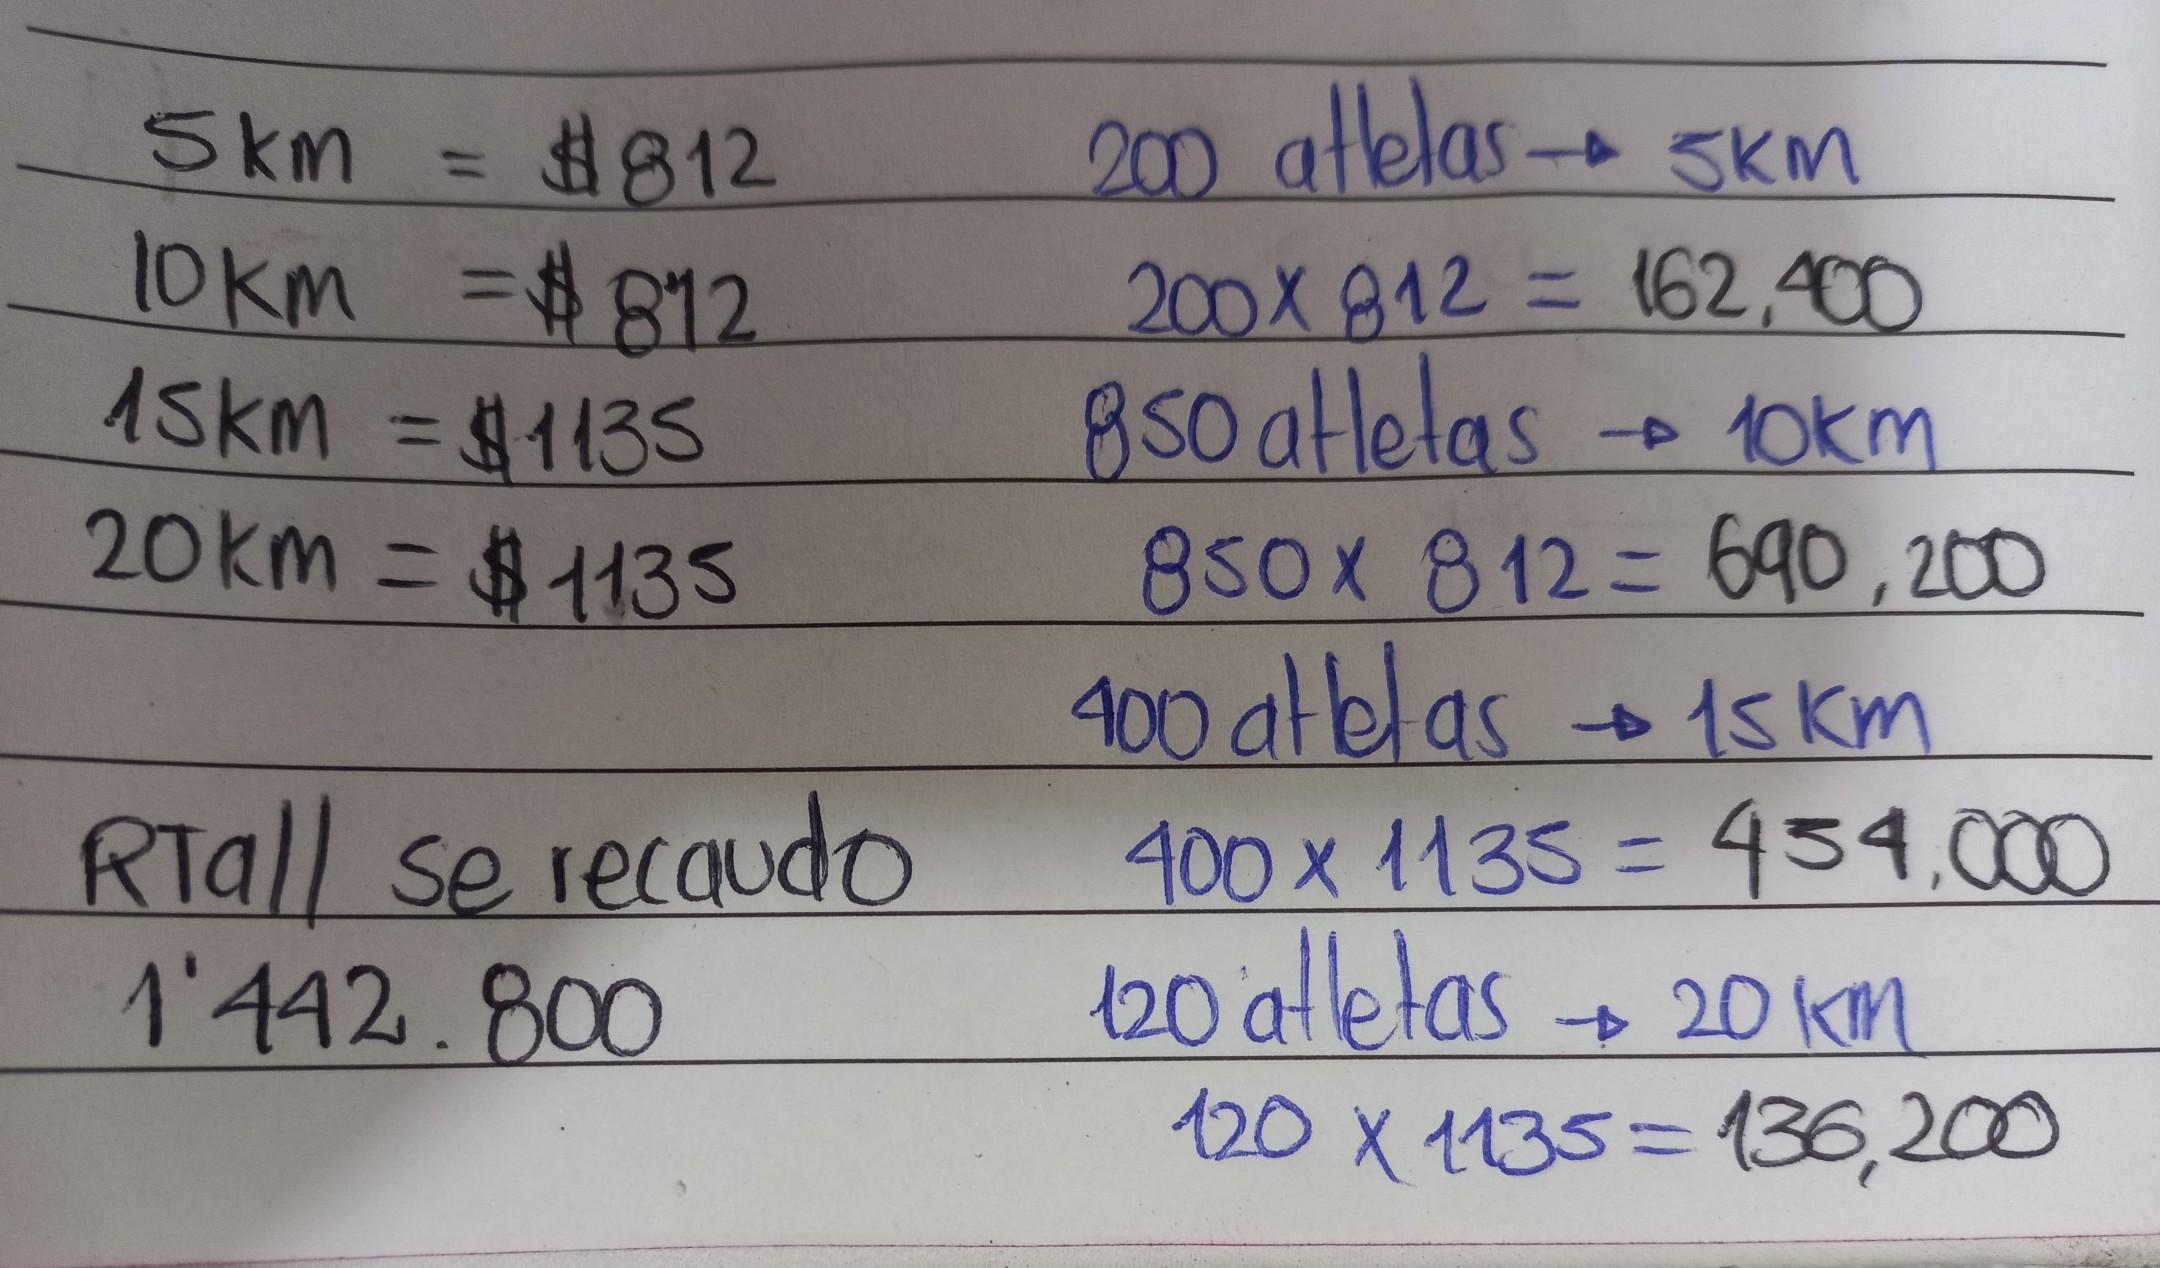 5km = $812
10km = $812
15km = $1135
20km = $1135
RTall se recaudo
1'442.800
200 atletas → 5km
200 x 812 = 162,400
850 atletas → 10km
850 x 812 = 690,200
400 atletas → 15km
400 x 1135 = 454,000
120 atletas → 20km
120 x 1135 = 136,200